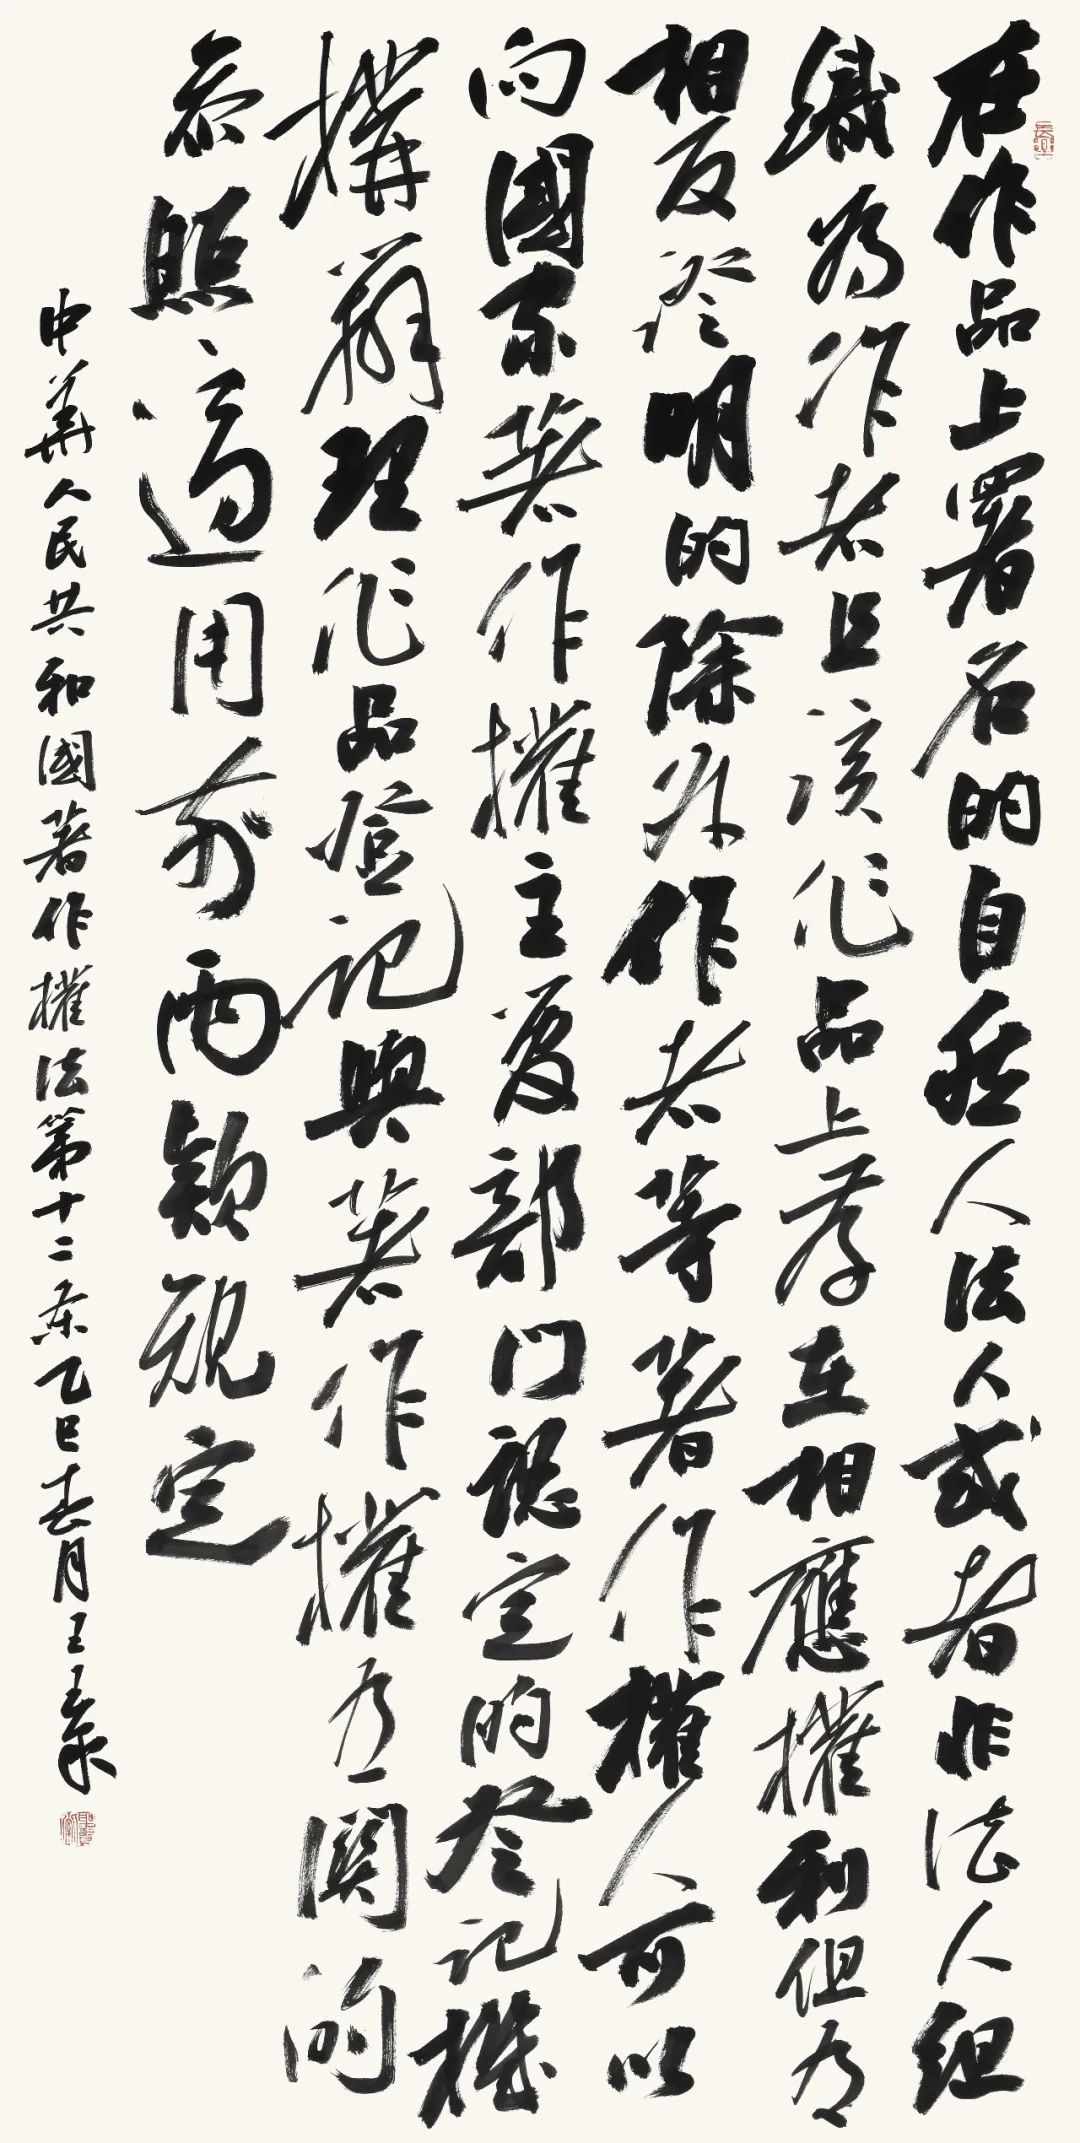 在作品上署名的自然人法人或者非法人組
織為作者且該作品上存在相應權利但有
相反證明的除外作者等著作權人可以
向國家著作權主要部門認定的登記機
構辦理作品登記與著作權有關的
參照適用前兩款規定
中華人民共和國著作權法第十二條乙巳春月王